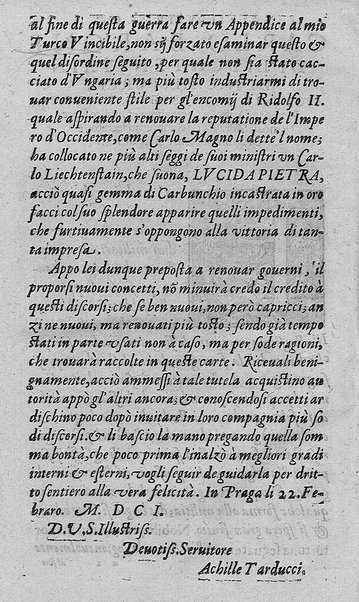 al fine di questa guerra fare vn Appendice al mio
Turco Vincibile, non sij forzato esaminar questo &
quel disordine seguito, per quale non sia stato cac-
ciato d'Vngaria; ma più tosto industriarmi di tro-
uar conueniente stile per gl'encomij di Ridolfo II.
quale aspirando a renouare la reputatione de l'Impe
ro d'Occidente, come Carlo Magno li dette'l nome;
ha collocato ne più alti seggi de suoi ministri vn Car-
lo Liechtenstain, che suona, LVCIDA PIETRA,
acciò quasi gemma di Carbunchio incastrata in oro
facci col suo splendore apparire quelli impedimenti,
che furtiuamente s'oppongono alla vittoria di tan-
ta impresa.
Appo lei dunque preposta a renouar gouerni, il
proporsi nuoui concetti, nõ minuirà credo il credito à
questi discorsi; che se ben nuoui, non però capricci; an
zi ne nuoui, ma renouati più tosto; sendo già tempo
stati in parte vsati non à caso, ma per sode ragioni,
che trouarà raccolte in queste carte. Riceuali beni-
gnamente, acciò ammessi à tale tutela acquistino au
torità appò gl'altri ancora; & conoscendosi accetti ar
dischino poco dopò inuitare in loro compagnia più so
di discorsi. & li bascio la mano pregando quella som
ma bontà, che poco prima l'inalzò a megliori gradi
interni & esterni, vogli seguir de guidarla per drit-
to sentiero alla vera felicità. In Praga li 22. Fe-
braro. M. D C I.
D. V. S. Illustriss.
Deuotiss. Seruitore
Achille Tarducci.